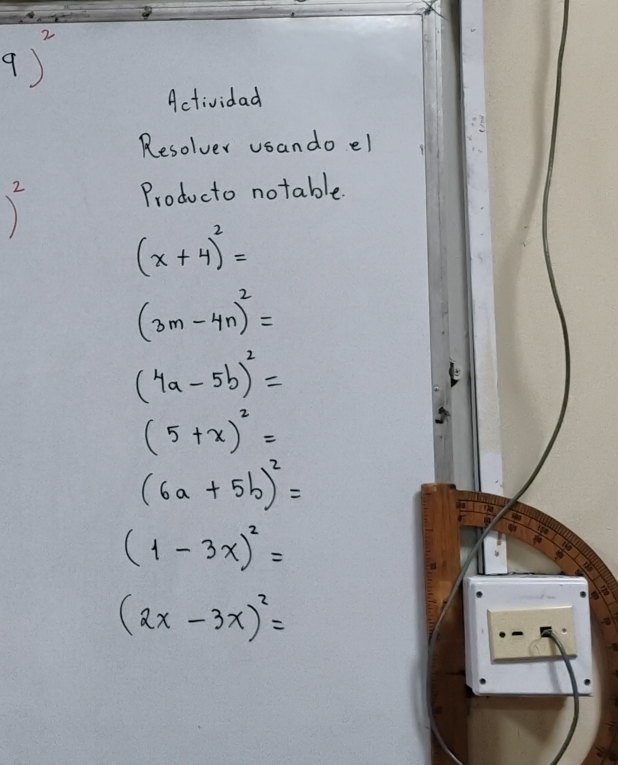 9)²
)²
Actividad
Resolver usando el
Producto notable.
(x + 4)² =
(3m - 4n)² =
(4a - 5b)² =
(5 + x)² =
(6a + 5b)² =
(1 - 3x)² =
(2x - 3x)² =